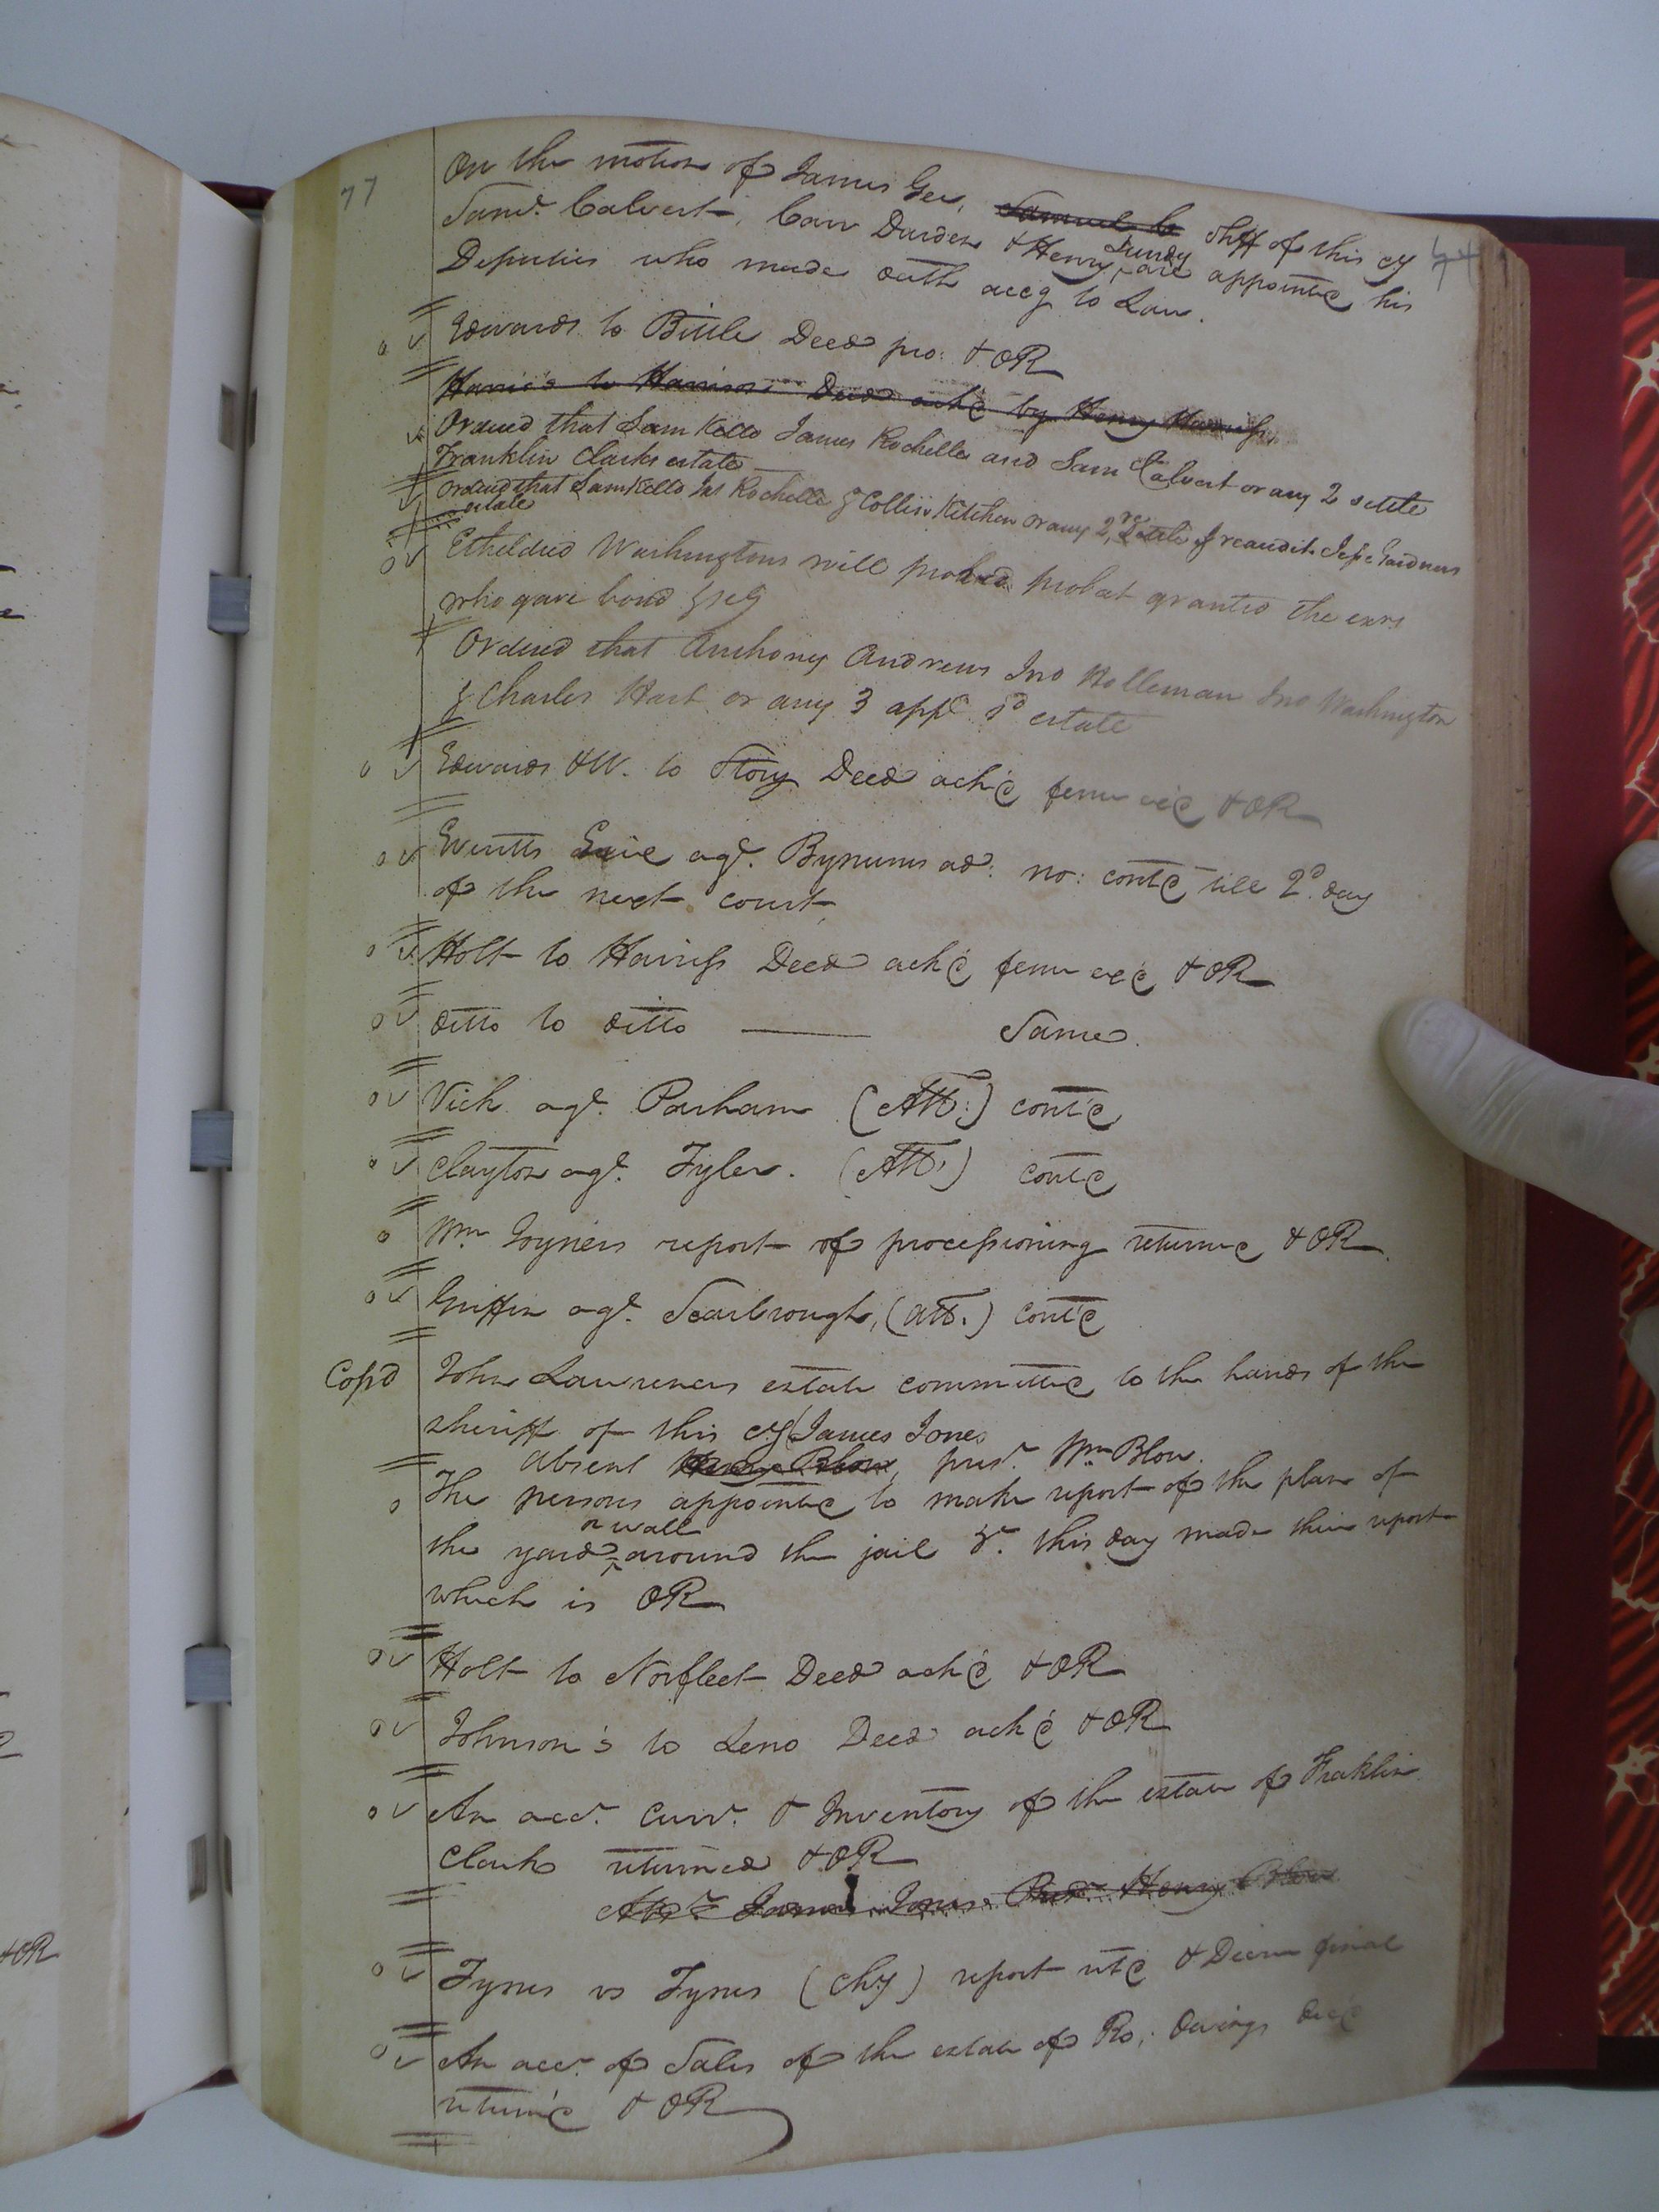 77
On the motion of James Gee, ~~Samuel C~~ Shff of this cy
Saml. Calvert, Carr Darden & Henry Lundy are appointed his
Deputies who made oath accg to Law.
Edwards to Bittle Deed pro: & OR
~~Harris's to Harrison Deed ack'd by Henry Harriss~~
Ordered that Sam Kello James Rochelle and Sam Calvert or any 2 settle
Franklin Clarks estate
Ordered that Sam Kello Jas Rochelle & Collin Kitchen or any 2, settle & reaudit Jesse Gardners
estate
Etheldred Washingtons will proved probat granted the exrs
who gave bond &cg
Ordered that Anthony Andrews Jno Holleman Jno Washington
& Charles Hart or any 3 appr sd estate
Edwards & W. to Story Deed ack'd feme ex'd & OR
agt. Bynums ad: no: cont'd till 2d. day
of the next court
Holt to Harriss Deed ack'd feme ex'd & OR
Ditto to Ditto ——— Same.
Vick agt. Parham (Att:) cont'd
Clayton agt. Tyler. (Att.) cont'd
Wm Joyners report of processioning returned & OR
Griffin agt. Scarbrough, (att.) cont'd
Copd
John Lawrences estate committed to the hands of the
sheriff of this cy James Jones
Absent ~~Henry Blow~~, prest. Wm Blow.
The persons appointed to make report of the plan of
or wall
the yard around the jail &c. this day made their report
which is OR
Holt to Norfleet Deed ack'd & OR
Johnson's to Leno Deed ack'd & OR
An acct. Curr. & Inventory of the estate of Fraklin
Clark returned & OR
~~Abst. James Jones Prest. Henry Blow~~
Tynes vs Tynes (Chy) report retd & Decree final
An acct. of Sales of the estate of Ro: Owings decd
return'd & OR